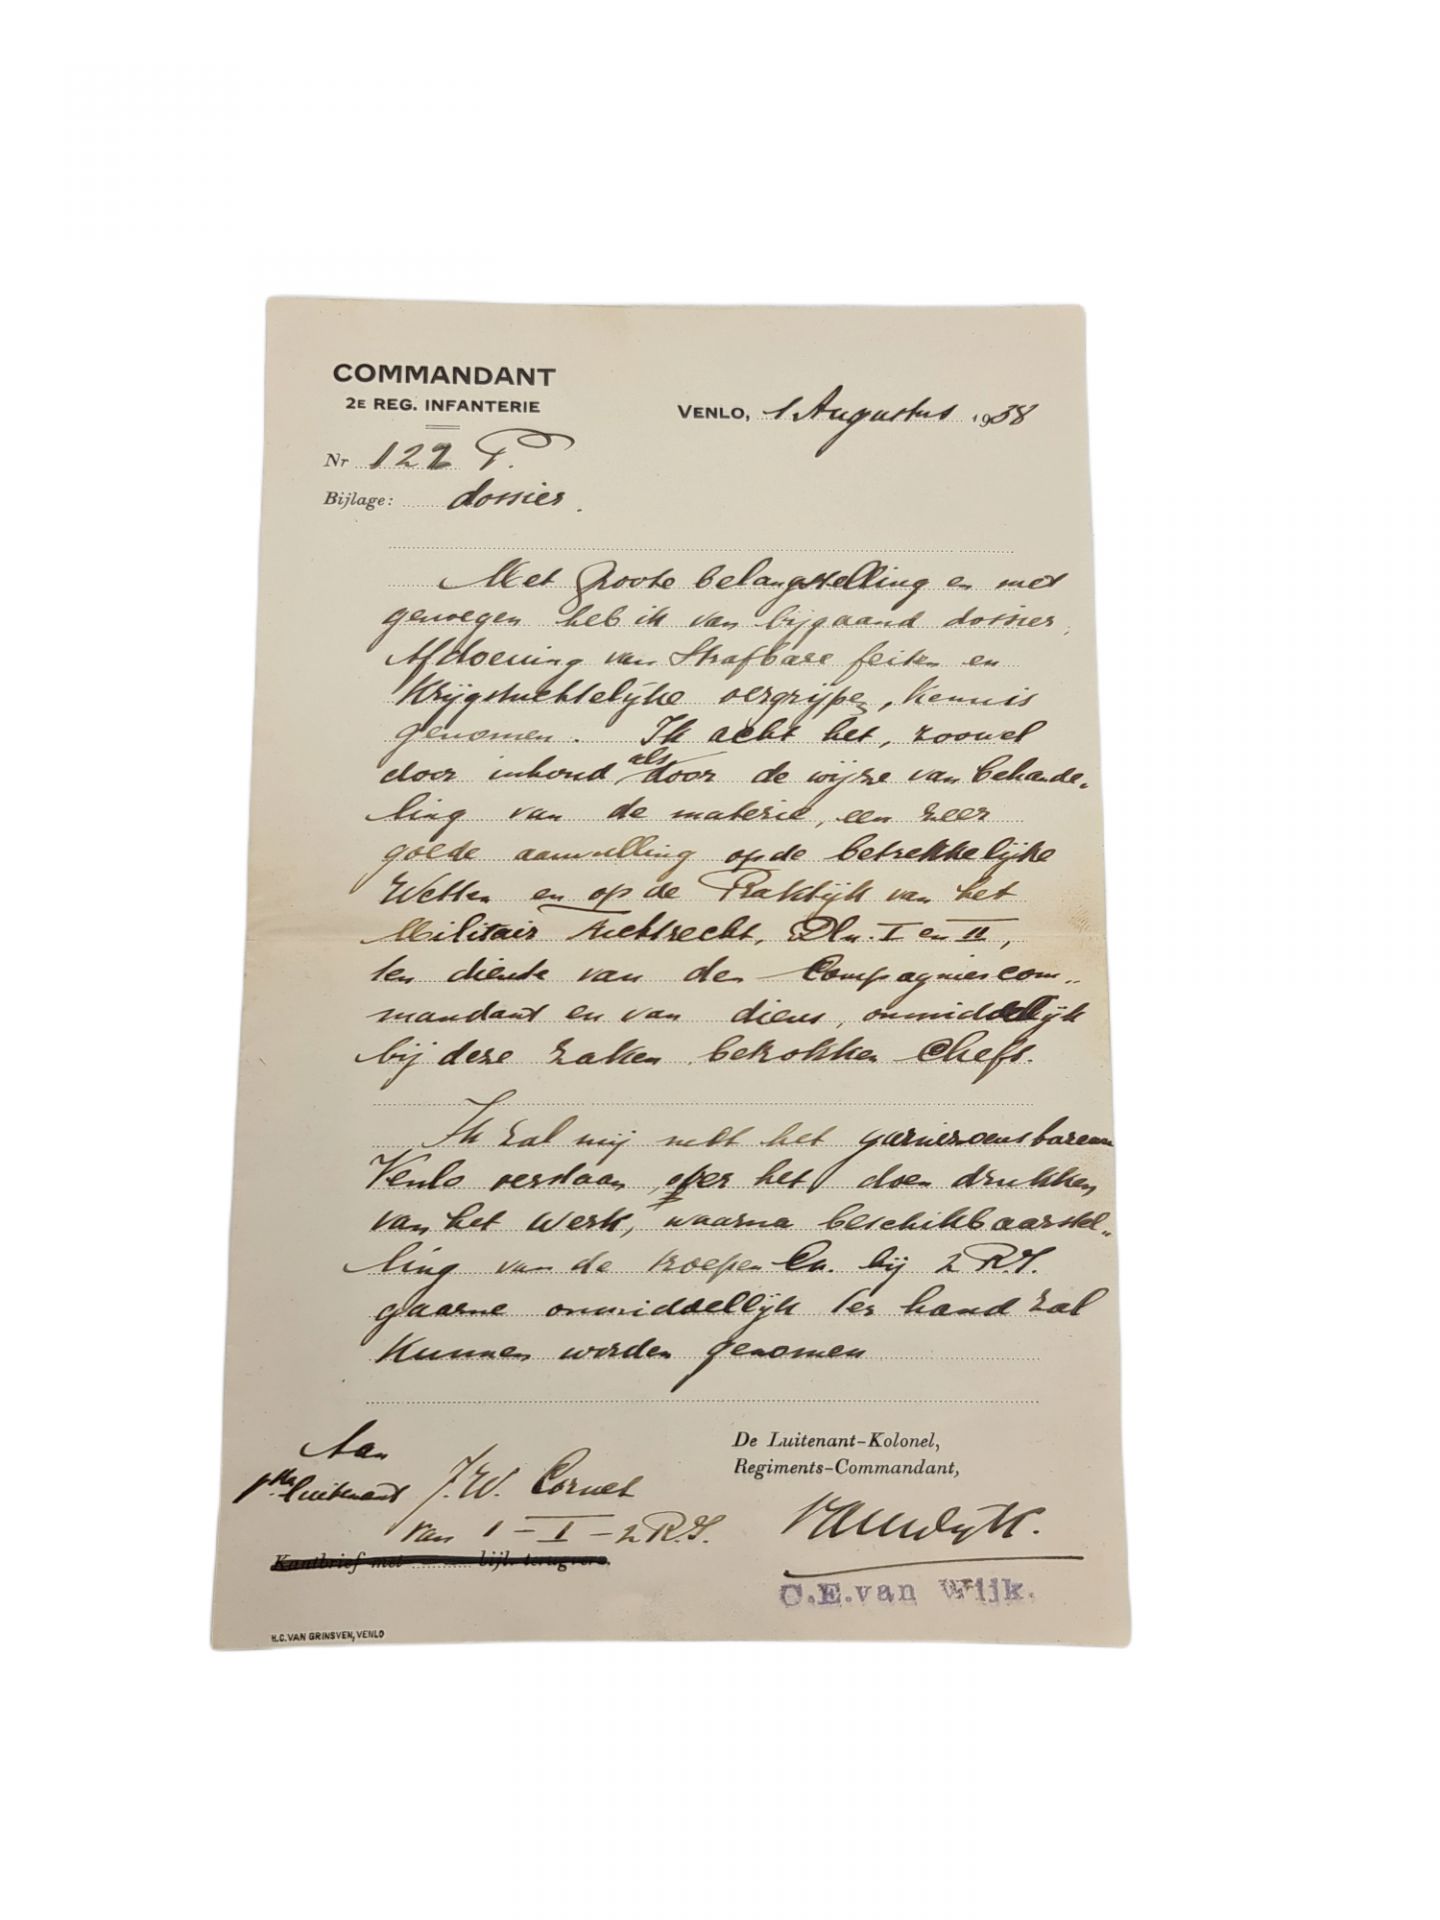 COMMANDANT
2E REG. INFANTERIE
VENLO, 1 Augustus 1938
Nr 122 P.
Bijlage: dossier.
Met groote belangstelling en met
genoegen heb ik van bijgaand dossier,
Afdoening van Strafbare feiten en
Krijgstuchtelijke vergrijpen, kennis
genomen. Ik acht het, zoowel
door inhoud als door de wijze van behande-
ling van de materie, een zeer
goede aanvulling op de betrekkelijke
Wetten en op de Praktijk van het
Militair tuchtrecht, Dln. I en II,
ten dienste van den Compagniescom-
mandant en van diens, onmiddellijk
bij deze zaken betrokken Chefs.
Ik zal mij met het garnizoensbureau
Venlo verstaan over het doen drukken
van het werk, waarna beschikbaarstel-
ling van de troepen Cn. bij 2 R.I.
gaarne onmiddellijk ter hand zal
kunnen worden genomen
Aan
1sten luitenant J.W. Cornet
van 1 – I – 2 R.I.
Kantbrief met bijl. terugverz.
De Luitenant-Kolonel,
Regiments-Commandant,
van Wijk.
C.E. van Wijk.
H.C. VAN GRINSVEN, VENLO